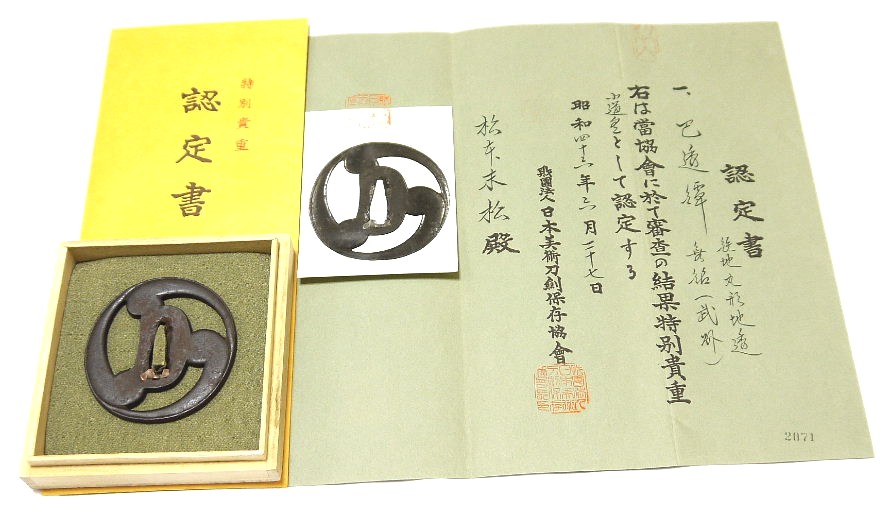 特別貴重
認定書
認定書
一、巴透鐔 無銘（武州）
鉄地丸形地透
右は當協會に於て審査の結果特別貴重
小道具として認定する
昭和四十六年三月二十七日
財團法人日本美術刀剣保存協會
松本末松殿
2071